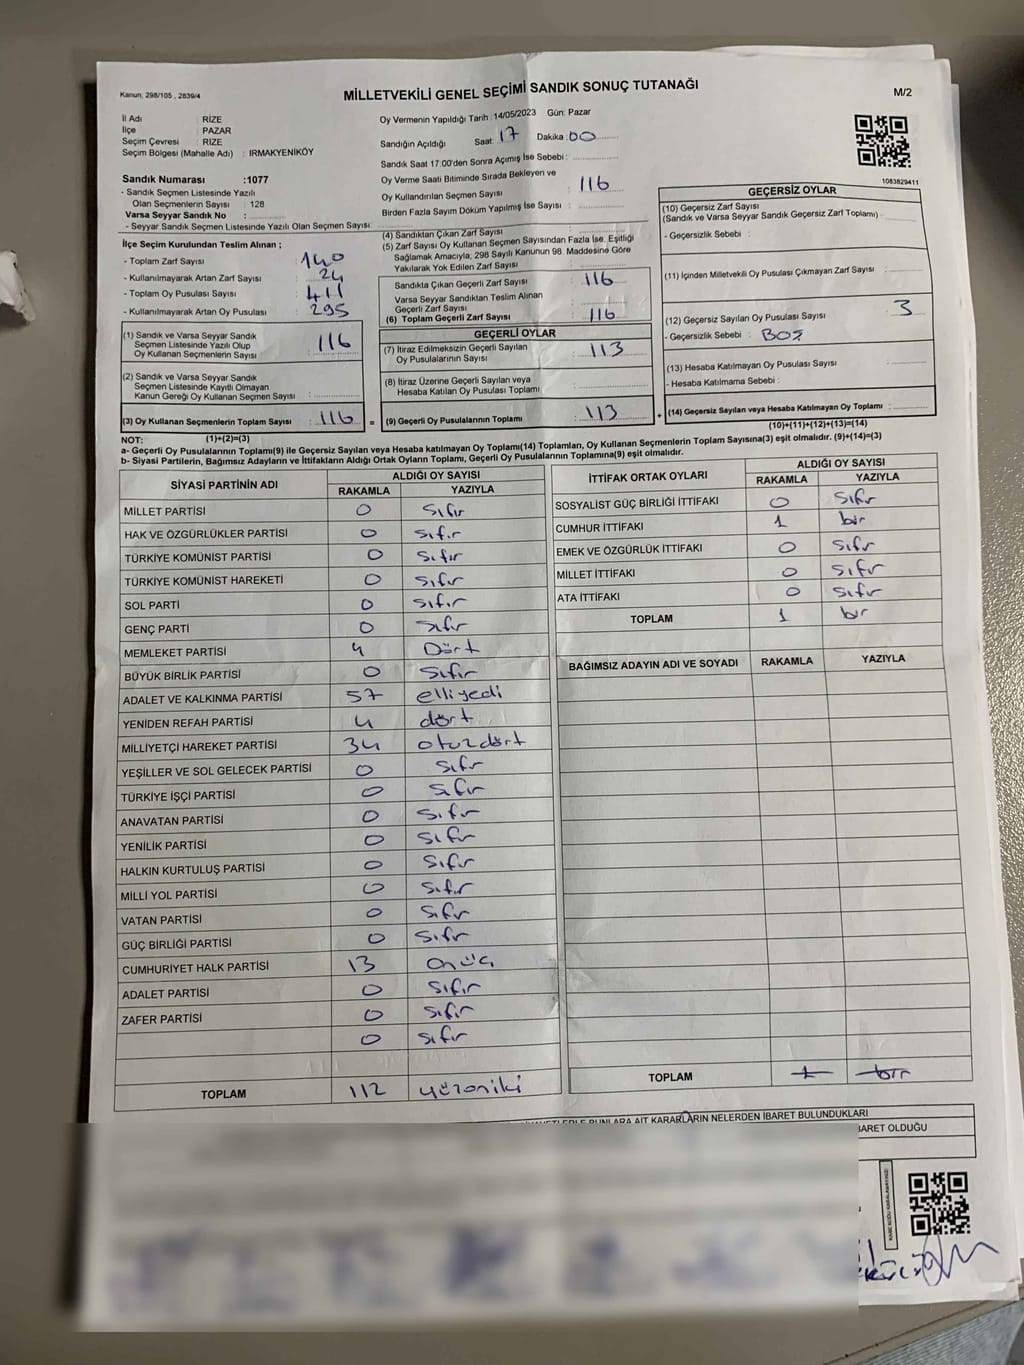 Kanun: 298/105 , 2839/4
MİLLETVEKİLİ GENEL SEÇİMİ SANDIK SONUÇ TUTANAĞI
M/2
İl Adı : RİZE
İlçe : PAZAR
Seçim Çevresi : RİZE
Seçim Bölgesi (Mahalle Adı) : IRMAKYENİKÖY
Oy Vermenin Yapıldığı Tarih :14/05/2023 Gün: Pazar
Sandığın Açıldığı Saat: 17 Dakika: 00
Sandık Saat 17:00'den Sonra Açımış İse Sebebi :
Oy Verme Saati Bitiminde Sırada Bekleyen ve
Oy Kullandırılan Seçmen Sayısı : 116
Birden Fazla Sayım Döküm Yapılmış İse Sayısı :
1083829411
Sandık Numarası :1077
- Sandık Seçmen Listesinde Yazılı
Olan Seçmenlerin Sayısı : 128
Varsa Seyyar Sandık No :
- Seyyar Sandık Seçmen Listesinde Yazılı Olan Seçmen Sayısı:
İlçe Seçim Kurulundan Teslim Alınan ;
- Toplam Zarf Sayısı : 140
- Kullanılmayarak Artan Zarf Sayısı : 24
- Toplam Oy Pusulası Sayısı : 411
- Kullanılmayarak Artan Oy Pusulası : 295
(1) Sandık ve Varsa Seyyar Sandık
Seçmen Listesinde Yazılı Olup
Oy Kullanan Seçmenlerin Sayısı : 116
(2) Sandık ve Varsa Seyyar Sandık
Seçmen Listesinde Kayıtlı Olmayan
Kanun Gereği Oy Kullanan Seçmen Sayısı :
(3) Oy Kullanan Seçmenlerin Toplam Sayısı : 116 =
(4) Sandıktan Çıkan Zarf Sayısı :
(5) Zarf Sayısı Oy Kullanan Seçmen Sayısından Fazla İse, Eşitliği
Sağlamak Amacıyla; 298 Sayılı Kanunun 98. Maddesine Göre
Yakılarak Yok Edilen Zarf Sayısı :
Sandıkta Çıkan Geçerli Zarf Sayısı : 116
Varsa Seyyar Sandıktan Teslim Alınan
Geçerli Zarf Sayısı :
(6) Toplam Geçerli Zarf Sayısı : 116
GEÇERLİ OYLAR
(7) İtiraz Edilmeksizin Geçerli Sayılan
Oy Pusulalarının Sayısı : 113
(8) İtiraz Üzerine Geçerli Sayılan veya
Hesaba Katılan Oy Pusulası Toplamı :
(9) Geçerli Oy Pusulalarının Toplamı : 113 +
GEÇERSİZ OYLAR
(10) Geçersiz Zarf Sayısı
(Sandık ve Varsa Seyyar Sandık Geçersiz Zarf Toplamı) :
- Geçersizlik Sebebi :
(11) İçinden Milletvekili Oy Pusulası Çıkmayan Zarf Sayısı :
(12) Geçersiz Sayılan Oy Pusulası Sayısı : 3
- Geçersizlik Sebebi : BOŞ
(13) Hesaba Katılmayan Oy Pusulası Sayısı :
- Hesaba Katılmama Sebebi :
(14) Geçersiz Sayılan veya Hesaba Katılmayan Oy Toplamı :
(1)+(2)=(3)
(10)+(11)+(12)+(13)=(14)
NOT:
a- Geçerli Oy Pusulalarının Toplamı(9) ile Geçersiz Sayılan veya Hesaba katılmayan Oy Toplamı(14) Toplamları, Oy Kullanan Seçmenlerin Toplam Sayısına(3) eşit olmalıdır. (9)+(14)=(3)
b- Siyasi Partilerin, Bağımsız Adayların ve İttifakların Aldığı Ortak Oyların Toplamı, Geçerli Oy Pusulalarının Toplamına(9) eşit olmalıdır.
SİYASİ PARTİNİN ADI ALDIĞI OY SAYISI
RAKAMLA YAZIYLA
MİLLET PARTİSİ 0 Sıfır
HAK VE ÖZGÜRLÜKLER PARTİSİ 0 Sıfır
TÜRKİYE KOMÜNİST PARTİSİ 0 Sıfır
TÜRKİYE KOMÜNİST HAREKETİ 0 Sıfır
SOL PARTİ 0 Sıfır
GENÇ PARTİ 0 Sıfır
MEMLEKET PARTİSİ 4 Dört
BÜYÜK BİRLİK PARTİSİ 0 Sıfır
ADALET VE KALKINMA PARTİSİ 57 elliyedi
YENİDEN REFAH PARTİSİ 4 dört
MİLLİYETÇİ HAREKET PARTİSİ 34 otuzdört
YEŞİLLER VE SOL GELECEK PARTİSİ 0 Sıfır
TÜRKİYE İŞÇİ PARTİSİ 0 Sıfır
ANAVATAN PARTİSİ 0 Sıfır
YENİLİK PARTİSİ 0 Sıfır
HALKIN KURTULUŞ PARTİSİ 0 Sıfır
MİLLİ YOL PARTİSİ 0 Sıfır
VATAN PARTİSİ 0 Sıfır
GÜÇ BİRLİĞİ PARTİSİ 0 Sıfır
CUMHURİYET HALK PARTİSİ 13 Onüç
ADALET PARTİSİ 0 Sıfır
ZAFER PARTİSİ 0 Sıfır
0 Sıfır
TOPLAM 112 yüzoniki
İTTİFAK ORTAK OYLARI ALDIĞI OY SAYISI
RAKAMLA YAZIYLA
SOSYALİST GÜÇ BİRLİĞİ İTTİFAKI 0 Sıfır
CUMHUR İTTİFAKI 1 bir
EMEK VE ÖZGÜRLÜK İTTİFAKI 0 Sıfır
MİLLET İTTİFAKI 0 Sıfır
ATA İTTİFAKI 0 Sıfır
TOPLAM 1 bir
BAĞIMSIZ ADAYIN ADI VE SOYADI RAKAMLA YAZIYLA
TOPLAM 1 bir
BUNLARA AİT KARARLARIN NELERDEN İBARET BULUNDUKLARI
İBARET OLDUĞU